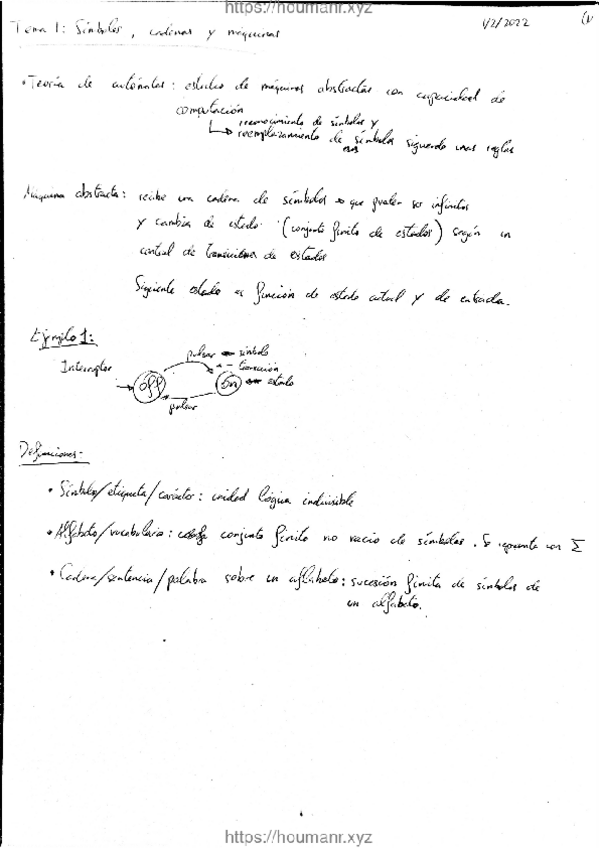 https://houmanr.xyz
Tema 1: Símbolos, cadenas y máquinas 1/2/2022 (1)
• Teoría de autómatas: estudio de máquinas abstractas con capacidad de
computación
↳ reconocimiento de símbolos y
reemplazamiento de símbolos siguiendo unas reglas
Máquina abstracta: recibe una cadena de símbolos que pueden ser infinitos
y cambia de estado (conjunto finito de estados) según un
control de transiciones de estados
Siguiente estado es función de estado actual y de entrada.
Ejemplo 1:
pulsar ← símbolo
← transición
Interruptor → Off On ← estado
pulsar
Definiciones:
• Símbolo/etiqueta/carácter: unidad lógica indivisible
• Alfabeto/vocabulario: conjunto finito no vacío de símbolos. Se representa con Σ
• Cadena/sentencia/palabra sobre un alfabeto: sucesión finita de símbolos de
un alfabeto.
https://houmanr.xyz